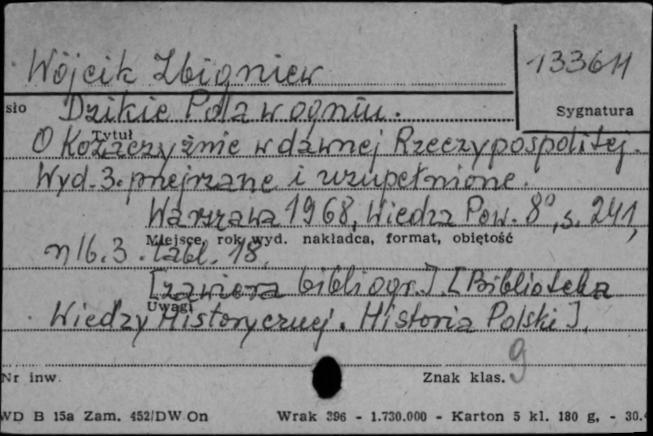 Wójcik Zbigniew
133611
sło Dzikie Pola w ogniu.
Sygnatura
Tytuł
O Kozaczyźnie w dawnej Rzeczypospolitej.
Wyd. 3. przejrzane i uzupełnione.
Warszawa 1968, Wiedza Pow. 8°, s. 241,
Miejsce, rok wyd. nakładca, format, obiętość
nlb. 3. tabl. 18,
[zawiera bibliogr.]. [Biblioteka
Uwagi
Wiedzy Historycznej. Historia Polski].
Nr inw.
Znak klas. 9
WD B 15a Zam. 452/DW On Wrak 396 - 1.730.000 - Karton 5 kl. 180 g, - 30.